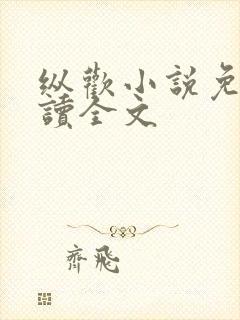 纵歡小說免
讀全文
齊飛